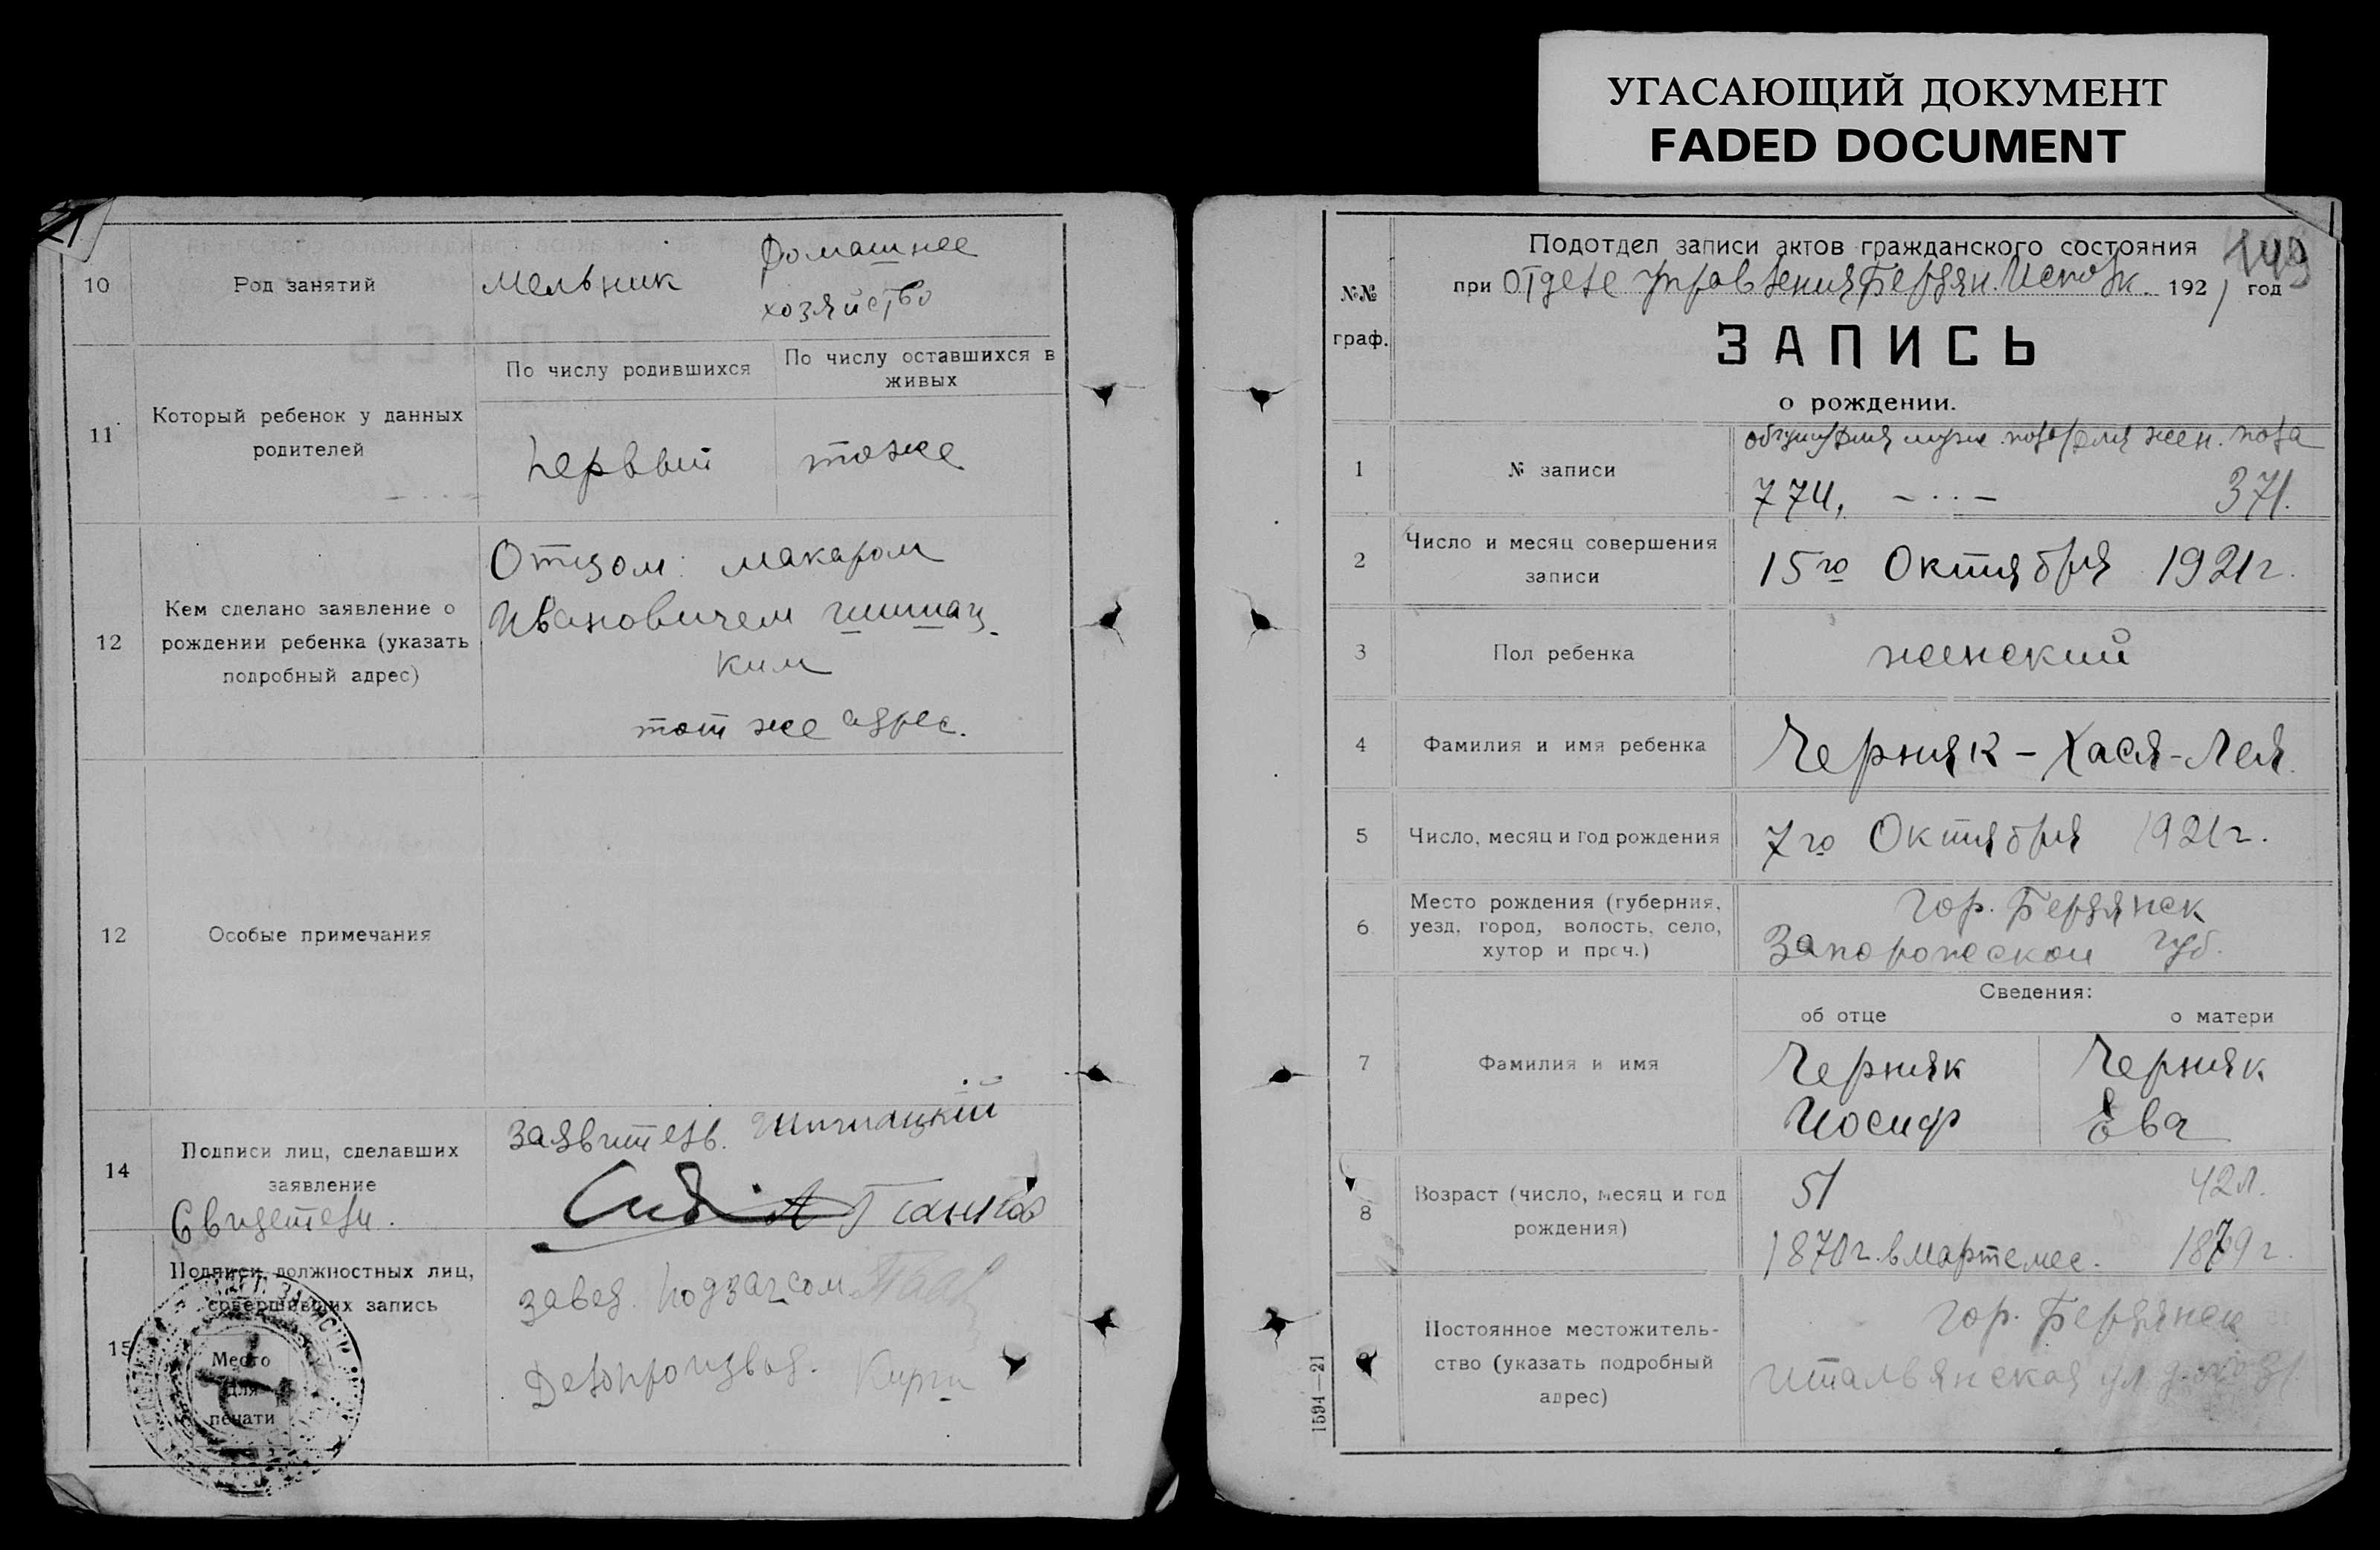 УГАСАЮЩИЙ ДОКУМЕНТ
FADED DOCUMENT
10
Род занятий
Мельник
Домашнее
хозяйство
11
Который ребенок у данных
родителей
По числу родившихся
По числу оставшихся в
живых
первый
тоже
12
Кем сделано заявление о
рождении ребенка (указать
подробный адрес)
Отцом: Макаром
Ивановичем Шишац-
ким
тот же адрес.
12
Особые примечания
14
Подписи лиц, сделавших
заявление
Свидетели.
Заявитель. Шишацкий
15
Подписи должностных лиц,
совершивших запись
Место
для
печати
завед. подзагсом
Делопроизвод.
149
№№
граф.
Подотдел записи актов гражданского состояния
при отделе управления Бердян. Исполк. 1921 год
ЗАПИСЬ
о рождении.
1
№ записи
общий для муж. пола для жен. пола
774, – · · – 371.
2
Число и месяц совершения
записи
15го Октября 1921г.
3
Пол ребенка
женский
4
Фамилия и имя ребенка
Черняк – Хася-Лея
5
Число, месяц и год рождения
7го Октября 1921г.
6
Место рождения (губерния,
уезд, город, волость, село,
хутор и проч.)
гор. Бердянск
Запорожской губ.
Сведения:
об отце
о матери
7
Фамилия и имя
Черняк
Иосиф
Черняк
Ева
8
Возраст (число, месяц и год
рождения)
51
1870г. в марте мес.
42 л.
1879 г.
9
Постоянное местожитель-
ство (указать подробный
адрес)
гор. Бердянск
Итальянская ул. д. № 31
1594—21